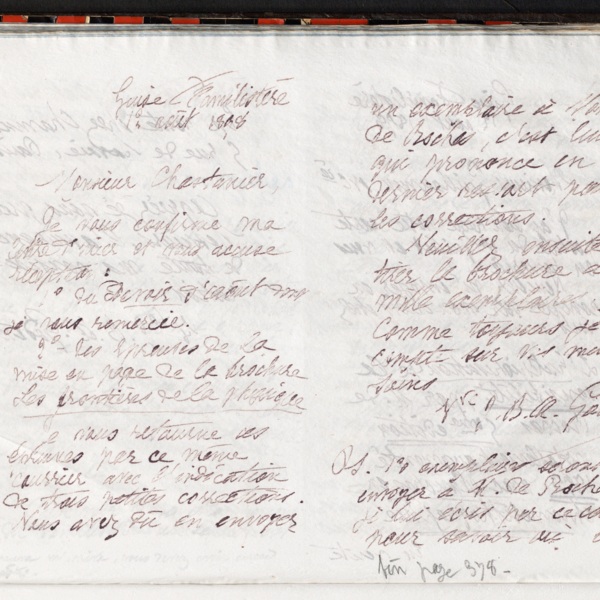 Guise Familistère
août 1898
Monsieur Chastanier
Je vous confirme ma
lettre d'hier et vous accuse
réception :
1º du Devoir d'août dont
je vous remercie.
2º - des épreuves de la
mise en page de la brochure
Les frontières de la physique
Je vous retourne ces
épreuves par ce même
courrier avec l'indication
de trois petites corrections.
Vous avez dû en envoyer
un exemplaire à
de Rocha, c'est lui
qui prononce en
dernier ressort
les corrections.
Veuillez ensuite
tirer la brochure à
mille exemplaires.
Comme toujours je
compte sur vos
soins
Vve A. B. A.
P.S. exemplaires seront
envoyer à M. de Rocha
je lui écris par ce
pour savoir où
fin page 378 -